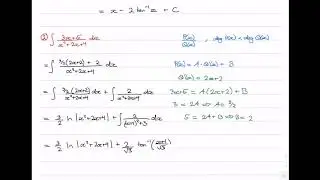 = x - 2 tan⁻¹ x + C
② ∫ (3x+5)/(x²+2x+4) dx
P(x)/Q(x), deg P(x) < deg Q(x)
= ∫ (3/2(2x+2) + 2)/(x²+2x+4) dx
P(x) = A·Q'(x) + B
Q'(x) = 2x+2
= ∫ 3/2(2x+2)/(x²+2x+4) dx + ∫ 2/(x²+2x+4) dx
3x+5 = A(2x+2) + B
3 = 2A ⇒ A = 3/2
= 3/2 ln|x²+2x+4| + ∫ 2/((x+1)²+3) dx
5 = 2A+B ⇒ B = 2
= 3/2 ln|x²+2x+4| + 2/√3 tan⁻¹((x+1)/√3)